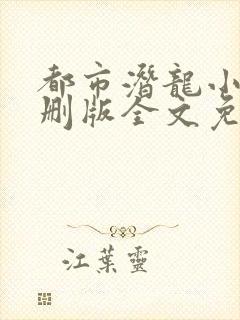 都市潛龍小
刪版全文免
江葉靈